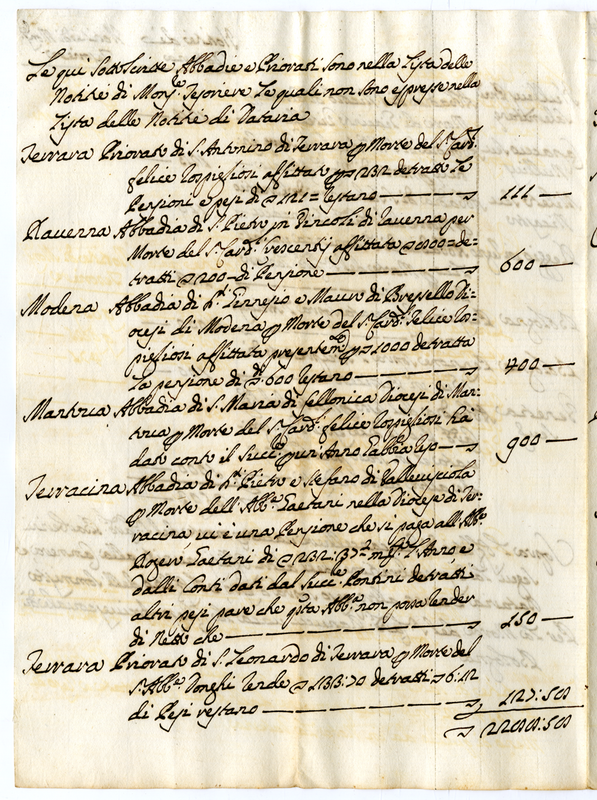 Le qui sottoscritte Abbadie e Priorati sono nella Lista delle
Notitie di Mons.r Tesoriere le quali non sono espresse nella
Lista delle Notitie di Dataria
Ferrara Priorato di S. Antonino di Ferrara p Morte del S.r Card.
felice Rospigliosi affittato p 232 detratte le
Pensioni e pesi di 121 = restano 111
Ravenna Abbadia di S. Pietro in Vincoli di Ravenna per
Morte del S.r Card. Crescentij affittata 800 de=
tratti 200 di Pensione 600
Modena Abbadia di S. Gennesio e Mauro di Bressello Di=
ocesi di Modena p Morte del S.r Card. Felice Ros=
pigliosi affittata presentem.te p 1000 detratta
la pensione di 600 restano 400
Mantua Abbadia di S. Maria di Fellonica Diocesi di Man=
tua p Morte del S.r Card. felice Rospigliosi hà
dato conto il Succ.re p un Anno l'abbia reso 900
Terracina Abbadia di S. Pietro e Stefano di Vallevisciola
p Morte dell'Abb.e Gaetani nella Diocese di Ter=
racina, vi è una Pensione che si paga all'Abb.e
Rogeri Gaetani di 232:37½ l'Anno e
dalli Conti dati dal Succ.re Pontini detratti
altri pesi pare che q.ta Abb.a non possa render
di Netto che 150
Ferrara Priorato di S. Leonardo di Ferrara p Morte del
S.r Abb.e Donghi rende 133:70 detratti 6:12
di Pesi restano 127:58
2288:58